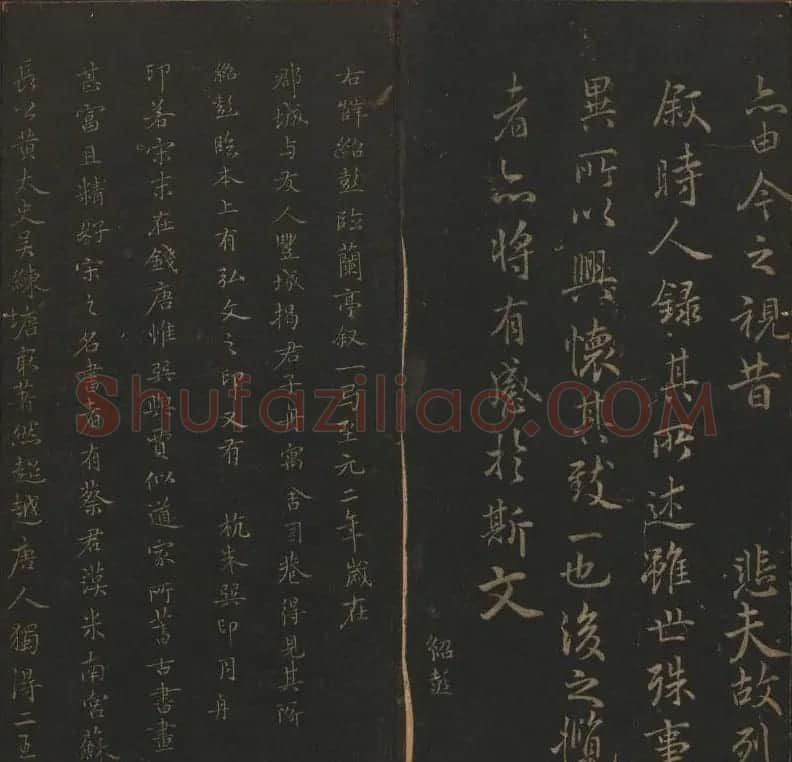 亦由今之視昔 悲夫故列
叙時人錄其所述雖世殊事
異所以興懷其致一也後之攬
者亦將有感於斯文
紹彭
右薛紹彭臨蘭亭叙一 至元二年歲在
郡城與友人豐城揭君子舟寓舍 卷得見其所
紹彭臨本上有弘文之印又有 杭米巽印同舟
印若宋末在錢唐惟巽與賈似道家所蓄古書畫
甚富且精好宋之名書者有蔡君謨米南宮蘇
長公黃太史吳練塘最者然超越唐人獨得二王
Shufaziliao.COM